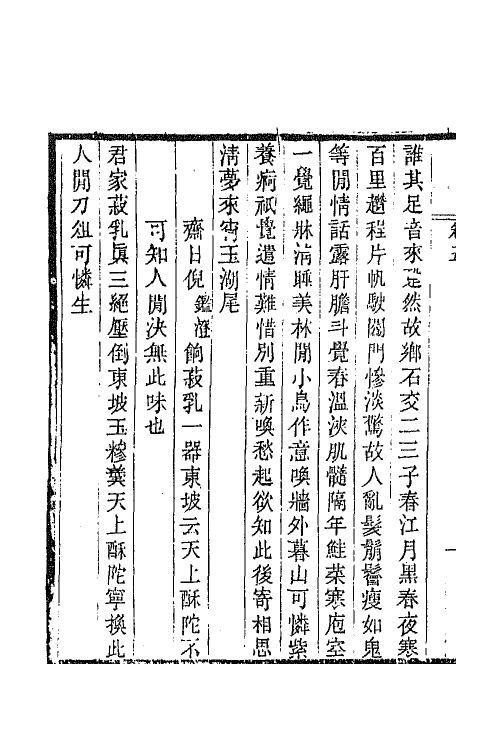 卷五
誰其足音來跫然故鄉石交二三子春江月黑春夜寒
百里趲程片帆駛閶門慘淡驚故人亂髮鬅鬙瘦如鬼
等閒情話露肝膽斗覺春溫浹肌髓隔年鮭菜寒庖空
一覺繩牀淸睡美林閒小鳥作意喚牆外暮山可憐紫
養疴祇覺遣情難惜別重新喚愁起欲知此後寄相思
淸夢來甯玉湖尾
齋日倪鑑澄餉菽乳一器東坡云天上酥陀不
可知人閒決無此味也
君家菽乳眞三絕壓倒東坡玉糝羹天上酥陀寧換此
人閒刀俎可憐生